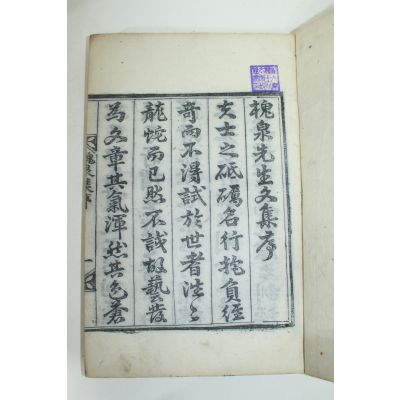 槐泉先生文集序
夫士之砥礪名行抱負經
奇而不得試於世者往々
龍蛇而已然不試故藝發
為文章其氣渾然其色蒼
槐泉集序
一